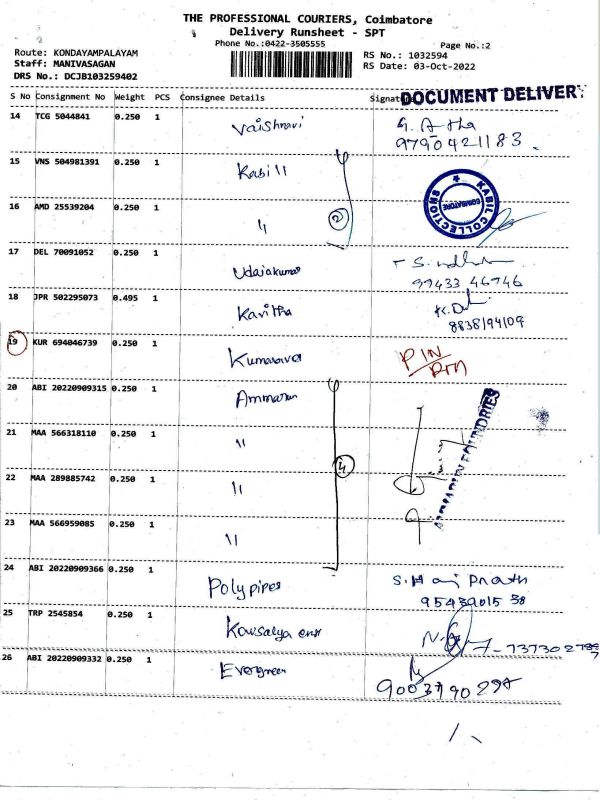 THE PROFESSIONAL COURIERS, Coimbatore
Delivery Runsheet - SPT
Phone No.:0422-3505555
Page No.:2
Route: KONDAYAMPALAYAM
Staff: MANIVASAGAN
DRS No.: DCJB103259402
RS No.: 1032594
RS Date: 03-Oct-2022
S No Consignment No Weight PCS Consignee Details
DOCUMENT DELIVERY
14 TCG 5044841 0.250 1 Vaishnavi
9790421183.
15 VNS 504981391 0.250 1 Kabill
16 AMD 25539204 0.250 1 "
2
KABIL COLLECTIONS
COIMBATORE
17 DEL 70091052 0.250 1 Udaiakumar
99433 46746
18 JPR 502295073 0.495 1 Kavitha
8838194109
19 KUR 694046739 0.250 1
PIN
20 ABI 20220909315 0.250 1
21 MAA 566318110 0.250 1 "
4
22 MAA 289885742 0.250 1 "
23 MAA 566959085 0.250 1 "
FOUNDRIES
24 ABI 20220909366 0.250 1 Polypipes
25 TRP 2545854 0.250 1 Kowsalya
26 ABI 20220909332 0.250 1 Evergreen